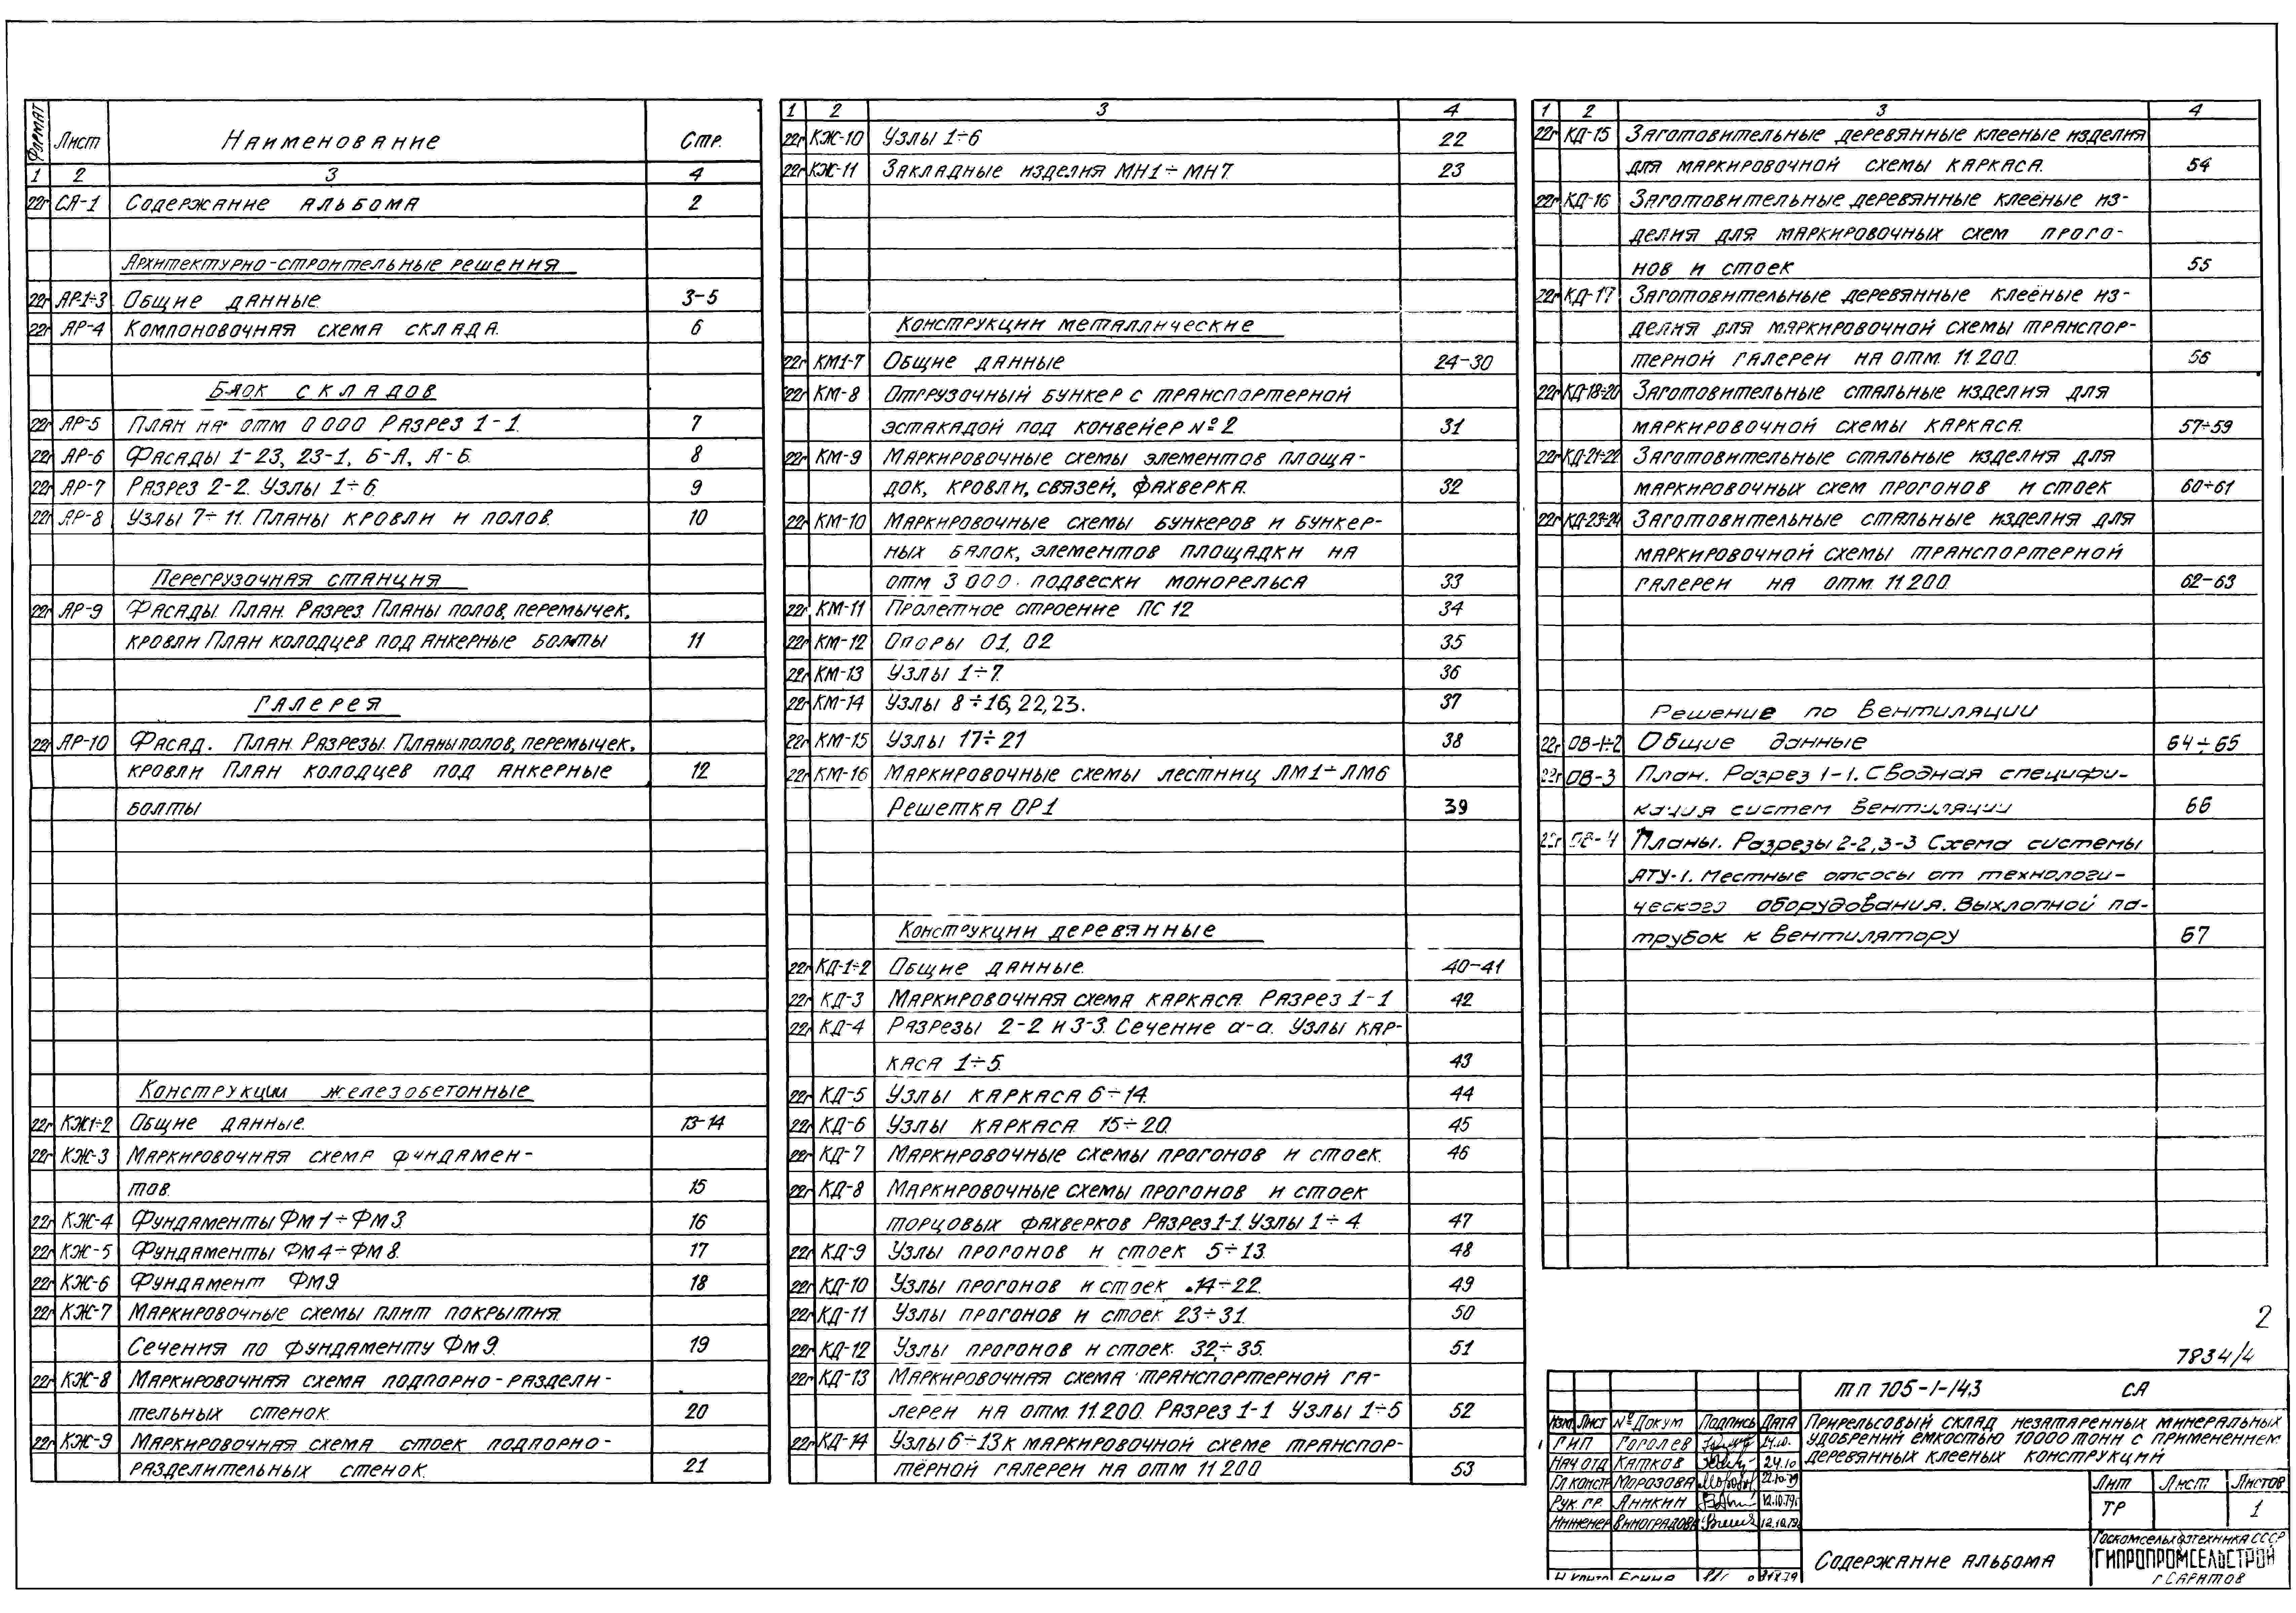 Формат Лист Наименование Стр.
1 2 3 4
22г СА-1 Содержание альбома 2
Архитектурно-строительные решения
22г АР1÷3 Общие данные. 3-5
22г АР-4 Компоновочная схема склада. 6
Блок складов
22г АР-5 План на отм 0 000 Разрез 1-1. 7
22г АР-6 Фасады 1-23, 23-1, Б-А, А-Б. 8
22г АР-7 Разрез 2-2. Узлы 1÷6. 9
22г АР-8 Узлы 7÷11. Планы кровли и полов. 10
Перегрузочная станция
22г АР-9 Фасады. План. Разрез. Планы полов, перемычек,
кровли План колодцев под анкерные болты 11
Галерея
22г АР-10 Фасад. План. Разрезы. Планы полов, перемычек,
кровли План колодцев под анкерные 12
болты
Конструкции железобетонные
22г КЖ1÷2 Общие данные. 13-14
22г КЖ-3 Маркировочная схема фундамен-
тов. 15
22г КЖ-4 Фундаменты Фм1÷Фм3 16
22г КЖ-5 Фундаменты Фм4÷Фм8. 17
22г КЖ-6 Фундамент Фм9 18
22г КЖ-7 Маркировочные схемы плит покрытия.
Сечения по фундаменту Фм9. 19
22г КЖ-8 Маркировочная схема подпорно-раздели-
тельных стенок. 20
22г КЖ-9 Маркировочная схема стоек подпорно-
разделительных стенок. 21
1 2 3 4
22г КЖ-10 Узлы 1÷6 22
22г КЖ-11 Закладные изделия МН1÷МН7. 23
Конструкции металлические
22г КМ1-7 Общие данные 24-30
22г КМ-8 Отгрузочный бункер с транспортерной
эстакадой под конвейер №2 31
22г КМ-9 Маркировочные схемы элементов площа-
док, кровли, связей, фахверка. 32
22г КМ-10 Маркировочные схемы бункеров и бункер-
ных балок, элементов площадки на
отм 3 000. подвески монорельса 33
22г КМ-11 Пролетное строение ПС 12 34
22г КМ-12 Опоры 01, 02 35
22г КМ-13 Узлы 1÷7. 36
22г КМ-14 Узлы 8÷16, 22, 23. 37
22г КМ-15 Узлы 17÷21 38
22г КМ-16 Маркировочные схемы лестниц ЛМ1÷ЛМ6
Решетка ОР1 39
Конструкции деревянные
22г КД-1÷2 Общие данные. 40-41
22г КД-3 Маркировочная схема каркаса. Разрез 1-1 42
22г КД-4 Разрезы 2-2 и 3-3. Сечение а-а. Узлы кар-
каса 1÷5. 43
22г КД-5 Узлы каркаса 6÷14. 44
22г КД-6 Узлы каркаса 15÷20. 45
22г КД-7 Маркировочные схемы прогонов и стоек. 46
22г КД-8 Маркировочные схемы прогонов и стоек
торцовых фахверков Разрез 1-1. Узлы 1÷4. 47
22г КД-9 Узлы прогонов и стоек 5÷13. 48
22г КД-10 Узлы прогонов и стоек 14÷22. 49
22г КД-11 Узлы прогонов и стоек 23÷31. 50
22г КД-12 Узлы прогонов и стоек. 32÷35. 51
22г КД-13 Маркировочная схема транспортерной га-
лереи на отм. 11.200. Разрез 1-1 Узлы 1÷5 52
22г КД-14 Узлы 6÷13 к маркировочной схеме транспор-
тёрной галереи на отм 11 200 53
1 2 3 4
22г КД-15 Заготовительные деревянные клееные изделия
для маркировочной схемы каркаса. 54
22г КД-16 Заготовительные деревянные клееные из-
делия для маркировочных схем прого-
нов и стоек 55
22г КД-17 Заготовительные деревянные клееные из-
делия для маркировочной схемы транспор-
терной галереи на отм. 11.200. 56
22г КД-18÷20 Заготовительные стальные изделия для
маркировочной схемы каркаса. 57÷59
22г КД-21÷22 Заготовительные стальные изделия для
маркировочных схем прогонов и стоек 60÷61
22г КД-23-24 Заготовительные стальные изделия для
маркировочной схемы транспортерной
галереи на отм. 11.200. 62-63
Решение по вентиляции
22г ОВ-1÷2 Общие данные 64÷65
22г ОВ-3 План. Разрез 1-1. Сводная специфи-
кация систем вентиляции 66
22г ОВ-4 Планы. Разрезы 2-2, 3-3 Схема системы
АТУ-1. Местные отсосы от технологи-
ческого оборудования. Выхлопной па-
трубок к вентилятору 67
2
7834/4
тп 705-1-143 СА
Изм. Лист № докум Подпись Дата
ГИП Гоголев 24.10.
Нач отд Катков 24.10
Гл констр Морозова 22.10.79
Рук. гр. Аникин 12.10.79г
Инженер Виноградова 12.10.79
Н контр
Прирельсовый склад незатаренных минеральных
удобрений емкостью 10000 тонн с применением
деревянных клееных конструкций
Лит Лист Листов
ТР 1
Содержание альбома
Госкомсельхозтехника СССР
ГИПРОПРОМСЕЛЬСТРОЙ
г Саратов